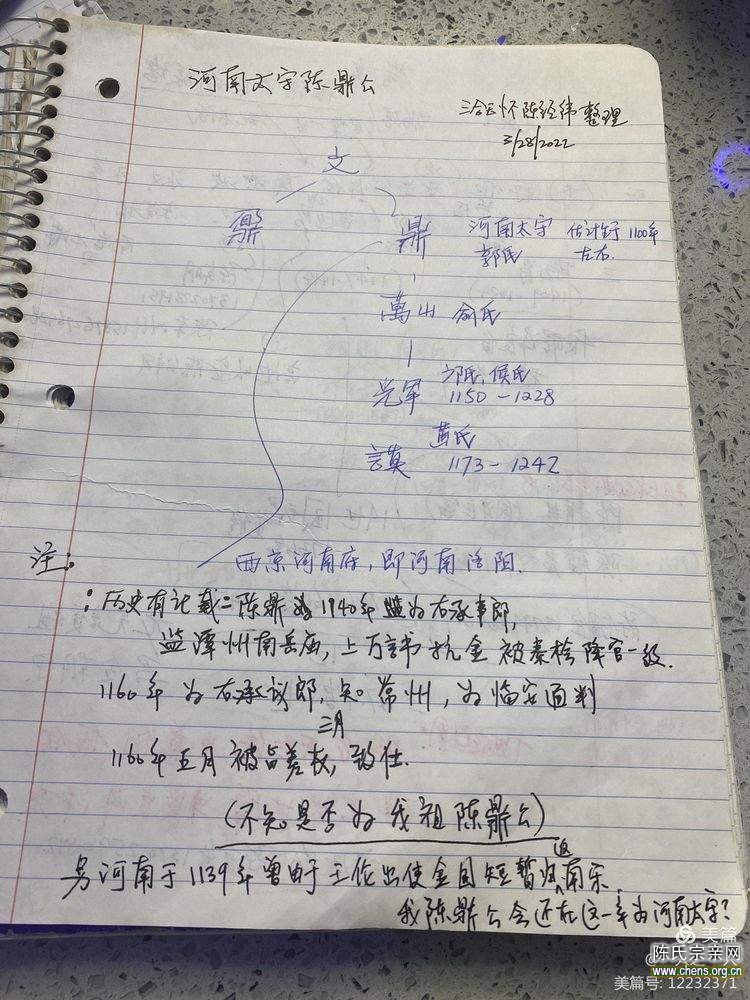 河南文字陈鼎公
陈经纬整理
3/28/2022
文
鼐 鼎 河南太守 估计生于1100年
郭氏 左右.
萬 俞氏
光军 方氏,侯氏
1150-1228
黄氏
謨 1173-1242
西京河南府,即河南洛阳.
注:
:历史有记载二陈鼎 1940年 为右承事郎,
监潭州南岳庙,上万言书抗金被秦桧降官一级.
1160年为右承议郎,知常州,为临安通判
三月
1160年五月被 差 ,致仕.
(不知是否为我祖陈鼎公)
另河南于1139年曾由于王伦出使金国短暂归返南宋.
我陈鼎公会还在这一年为河南太守?
美篇
陈氏宗亲网
www.chens.org.cn
美篇号: 12232371